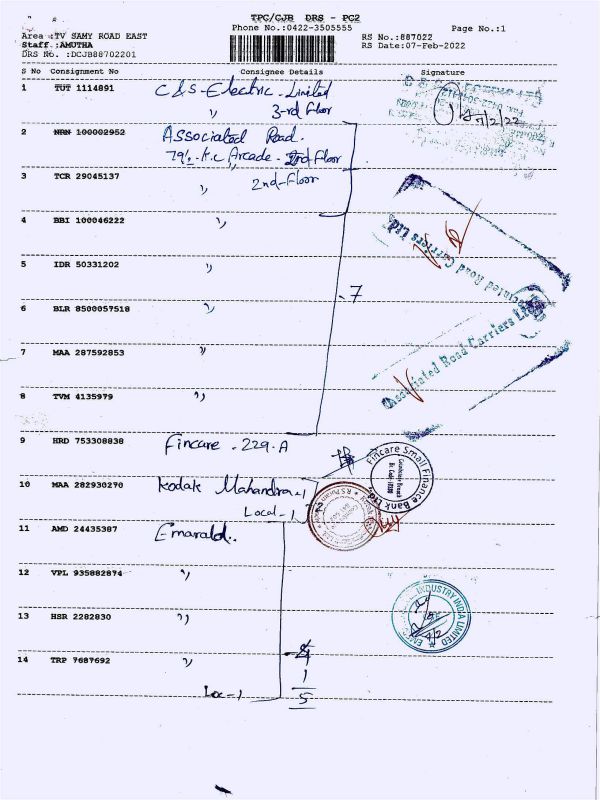 TPC/CJB DRS - PC2
Phone No.:0422-3505555
Page No.:1
Area :TV SAMY ROAD EAST
RS No.:887022
Staff.:AMUTHA
RS Date:07-Feb-2022
DRS No. :DCJB88702201
S No Consignment No Consignee Details Signature
1 TUT 1114891 C&S-Electric-Limited
" 3-rd floor
7/2/22
2 NRN 100002952 Associated Road.
79/. K.C Arcade - 2nd floor
3 TCR 29045137 " 2nd-floor
4 BBI 100046222 "
5 IDR 50331202 "
- 7
6 BLR 8500057518 "
7 MAA 287592853 "
8 TVM 4135979 "
Associated Road Carriers Ltd.
Associated Road Carriers Ltd.
9 HRD 753308838 Fincare - 229.A
Fincare Small Finance Bank Ltd.
10 MAA 282930270 Kodak Mahandra-1
Local-1
2
11 AMD 24435387 Emarald..
12 VPL 935882874 "
13 HSR 2282830 "
INDUSTRY INDIA LIMITED
14 TRP 7687692 "
4
1
Loc-1
5